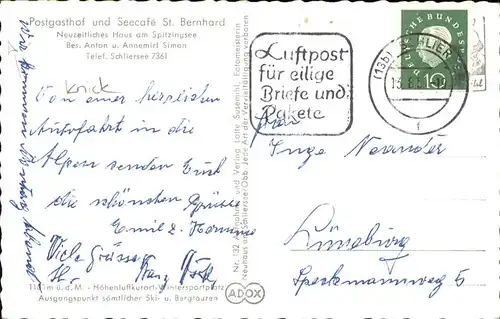 Postgasthof und Seecafé St. Bernhard
Neuzeitliches Haus am Spitzingsee
Bes. Anton u. Annemirl Simon
Telef. Schliersee 7361
Knick
Von einer herrlichen
Autofahrt in die
Alpen senden Euch
die schönsten Grüße
Emil u.
Viele Grüsse
Wir kommen Montag abend
1100 m ü. d. M. - Höhenluftkurort - Wintersportplatz
Ausgangspunkt sämtlicher Ski- u. Bergtouren
Nr. 132 Photographie und Verlag Lotte Susemihl, Fotomeisterin
Neuhaus am Schliersee/Obb. Jede Art der Vervielfältigung verboten
ADOX
Luftpost
für eilige
Briefe und
Pakete
(13b) SCHLIERSEE
DEUTSCHE BUNDESPOST
10
Frau
Inge Neander
Lüneburg
Speckmannweg 5